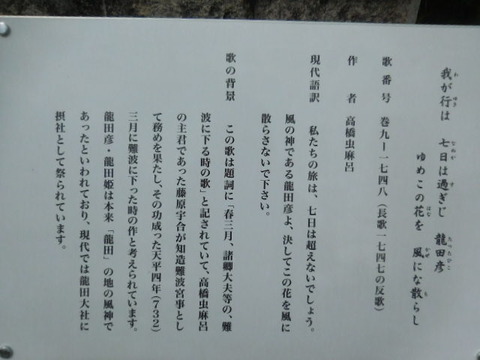 我が行は 七日は過ぎじ 龍田彦
ゆめこの花を 風にな散らし
歌番号 巻九ー一七四八（長歌一七四七の反歌）
作者 高橋虫麻呂
現代語訳 私たちの旅は、七日は超えないでしょう。
風の神である龍田彦よ、決してこの花を風に
散らさないで下さい。
歌の背景 この歌は題詞に「春三月、諸卿大夫等の、難
波に下る時の歌」と記されていて、高橋虫麻呂
の主君であった藤原宇合が知造難波宮事とし
て務めを果たし、その功成った天平四年（７３２）
三月に難波に下った時の作と考えられています。
龍田彦・龍田姫は本来「龍田」の地の風神で
あったといわれており、現代では龍田大社に
摂社として祭られています。